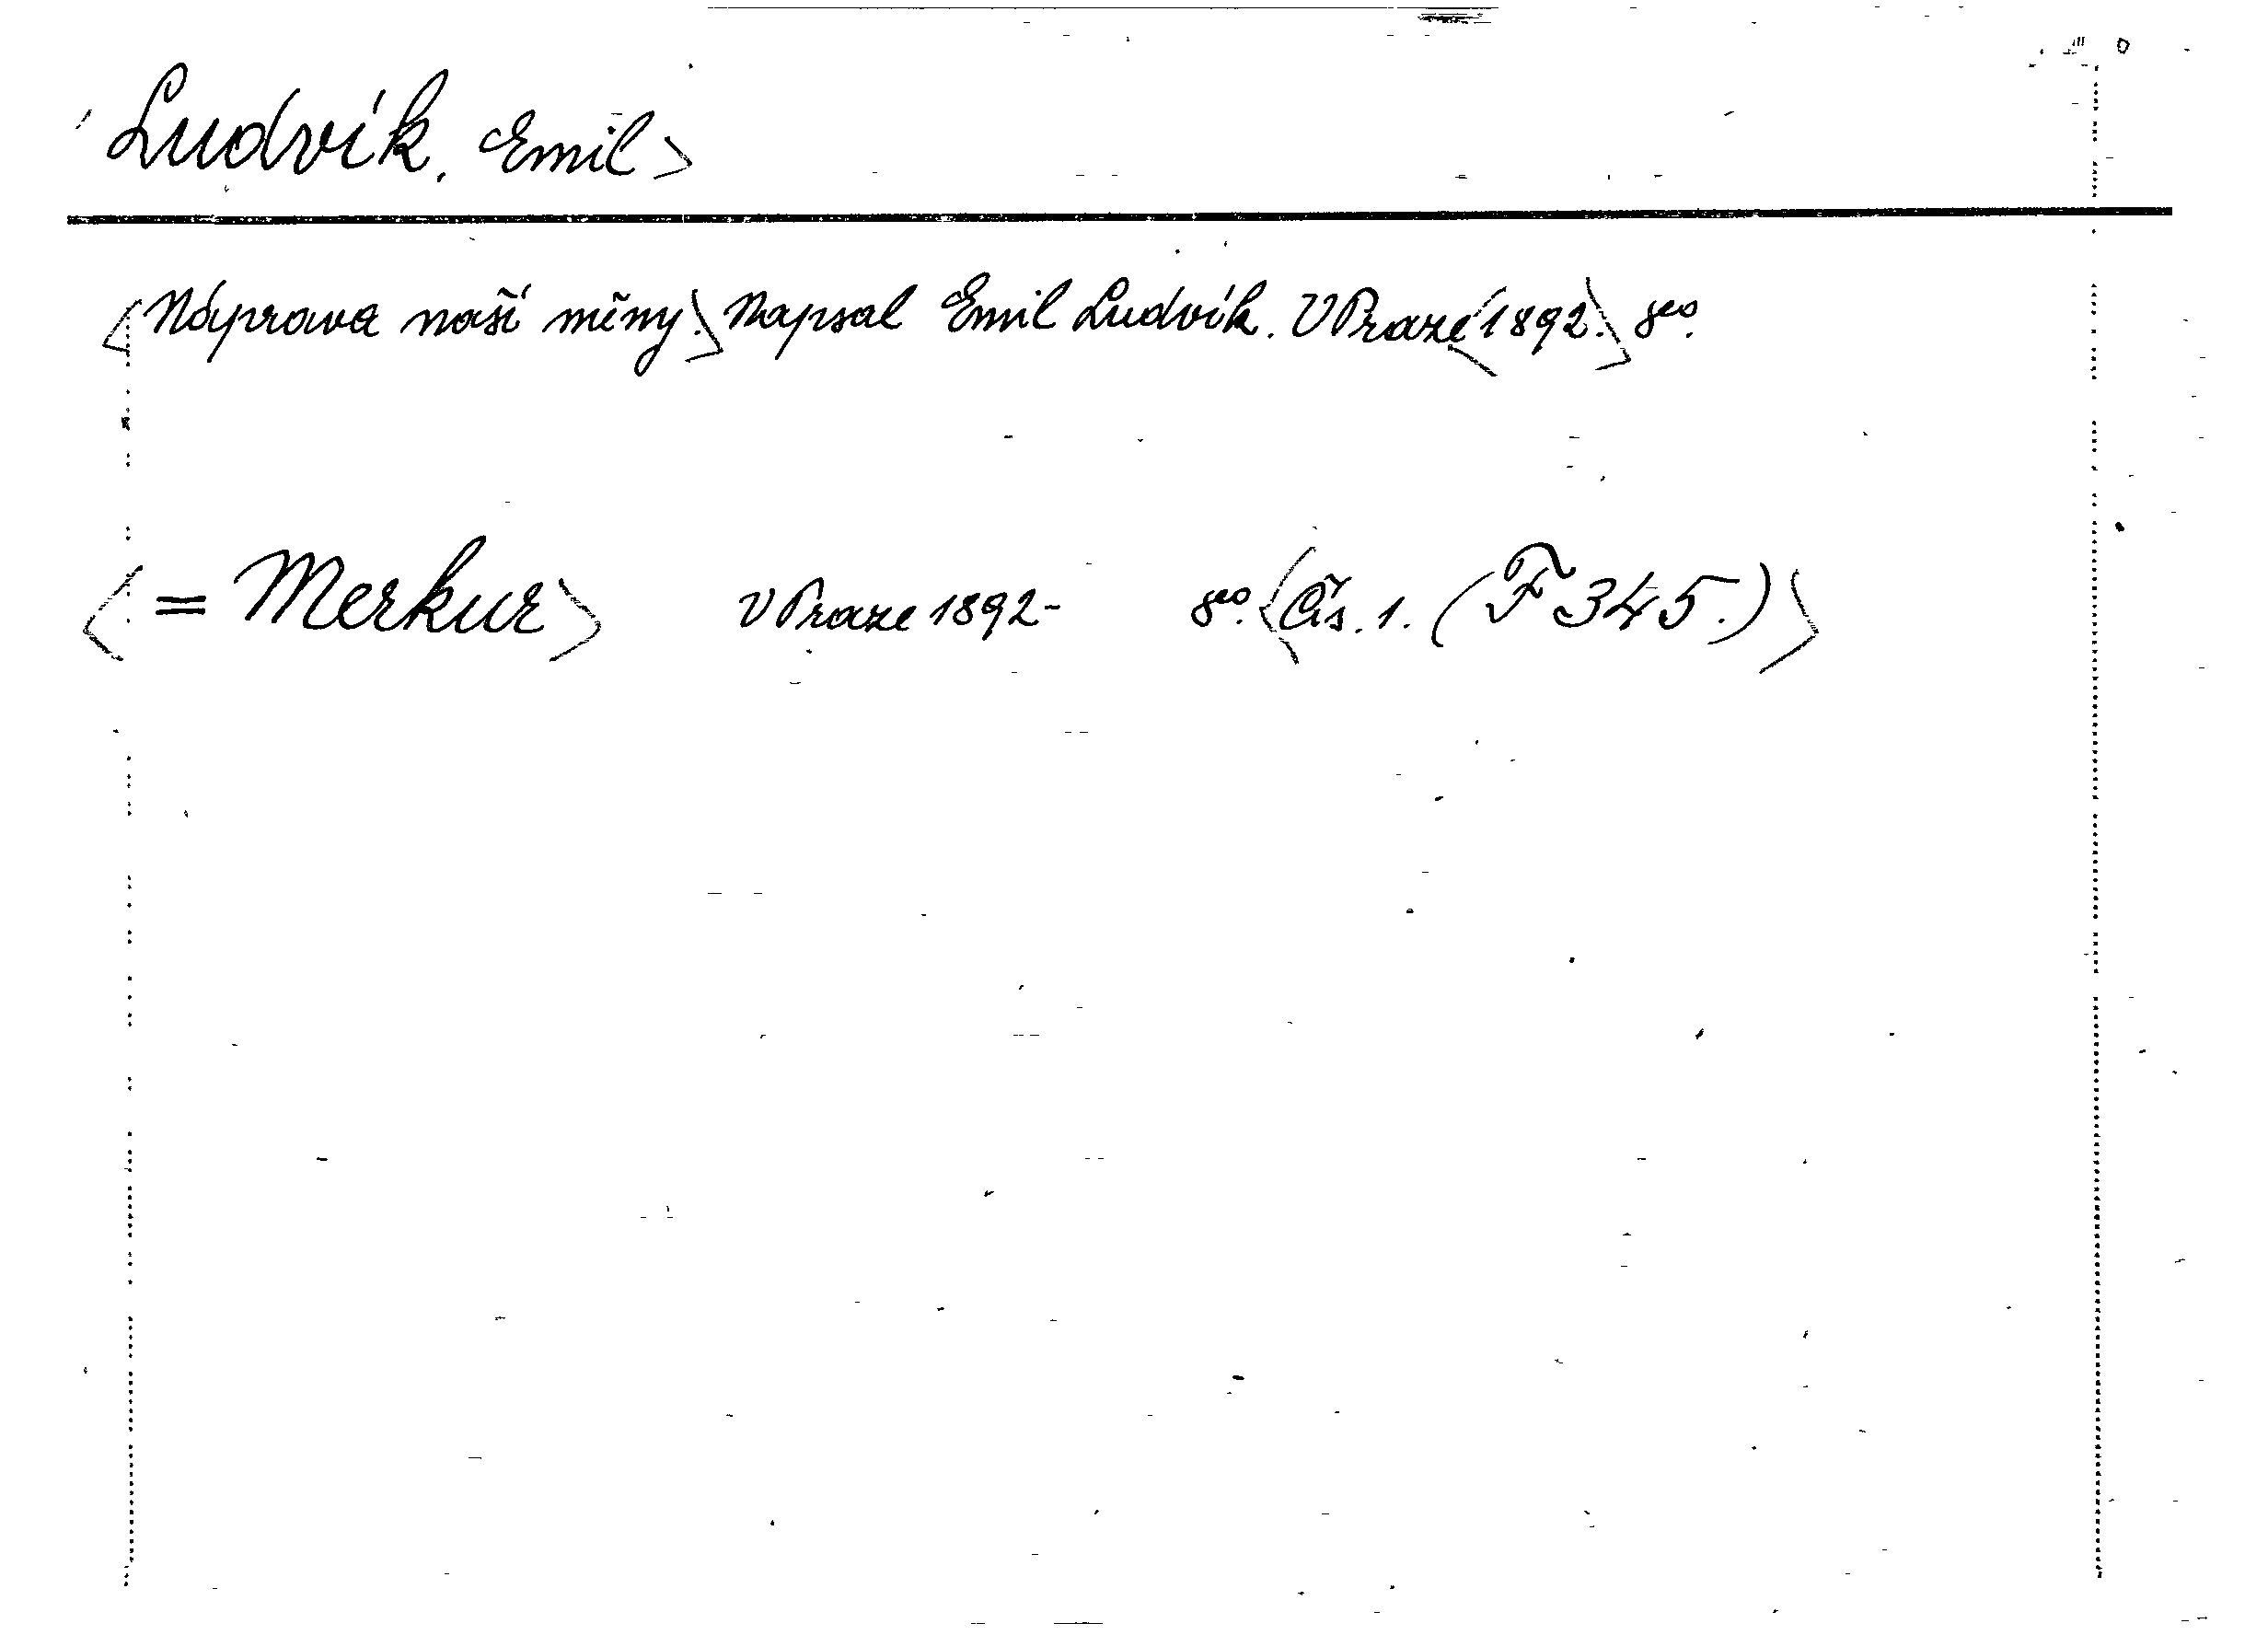 Ludvík, Emil>
<Náprava naší měny.> Napsal Emil Ludvík. V Praze <1892.> 8eo.
<= Merkur> V Praze 1892- 8eo. <Čís. 1. (F 345.)>